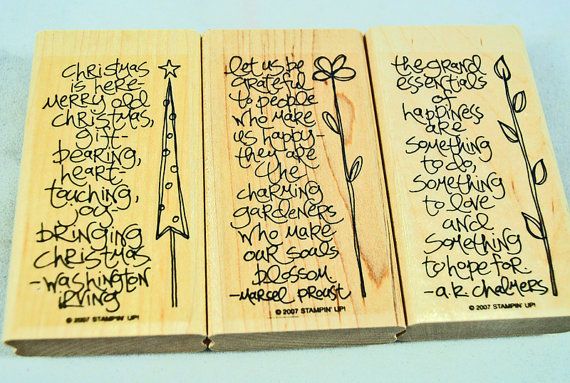 christmas
is here-
merry old
christmas,
gift-
bearing,
heart-
touching,
joy-
bringing
christmas
-washington
irving
© 2007 STAMPIN' UP!
let us be
grateful
to people
who make
us happy-
they are
the
charming
gardeners
who make
our souls
blossom.
-marcel proust
© 2007 STAMPIN' UP!
the grand
essentials
of
happiness
are
something
to do,
something
to love
and
something
to hope for.
-a.k. chalmers
© 2007 STAMPIN' UP!